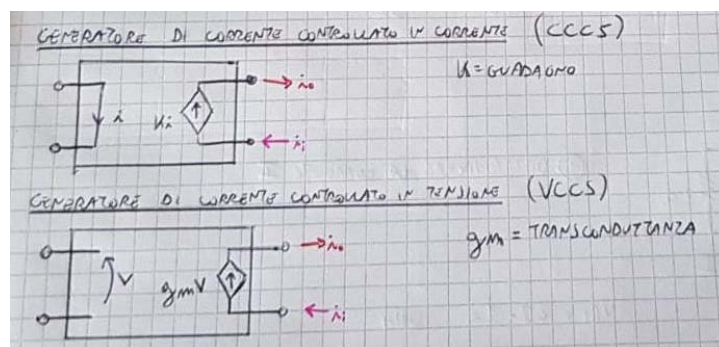 GENERATORE DI CORRENTE CONTROLLATO IN CORRENTE (CCCS)
K = GUADAGNO
i Ki io
ii
GENERATORE DI CORRENTE CONTROLLATO IN TENSIONE (VCCS)
gm = TRANSCONDUTTANZA
V gmV io
ii